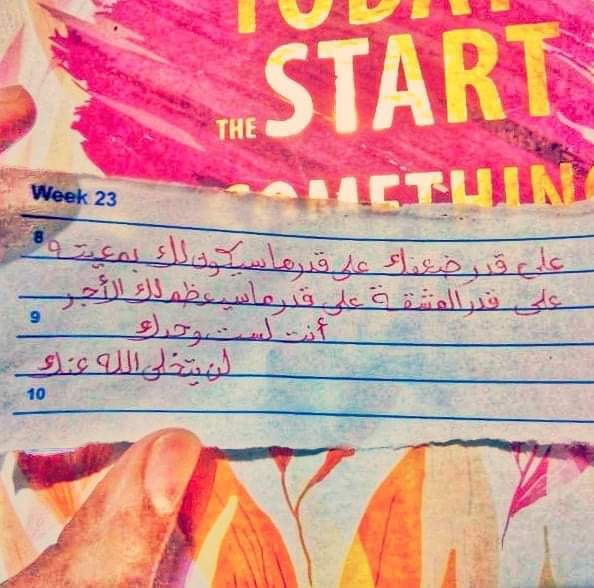 TODAY
THE START
SOMETHING
Week 23
8
على قدر ضعفك على قدر ما سيكون لك بمعيته و
على قدر المشقة على قدر ما سيعظم لك الأجر
9
أنت لست وحدك
لن يتخلى الله عنك
10